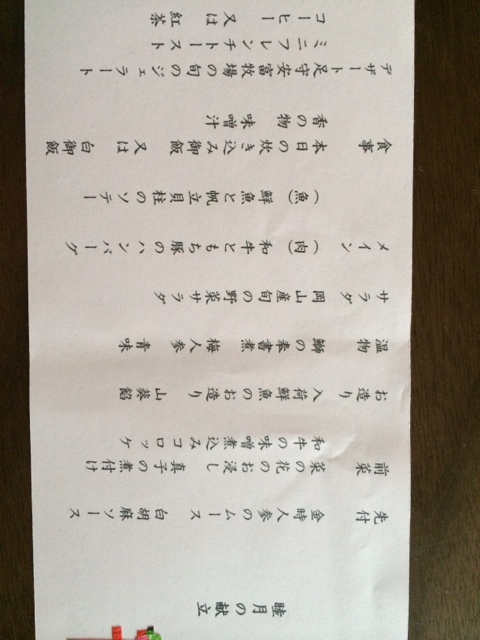 睦月の献立
先付 金時人参のムース 白胡麻ソース
前菜 菜の花のお浸し 真子の煮付け
和牛の味噌煮込みコロッケ
お造り 入荷鮮魚のお造り 山葵餡
温物 鰤の奉書煮 梅人参 青味
サラダ 岡山産旬の野菜サラダ
メイン (肉) 和牛ともち豚のハンバーグ
(魚) 鮮魚と帆立貝柱のソテー
食事 本日の炊き込み御飯 又は 白御飯
香の物 味噌汁
デザート 足守安富牧場の旬のジェラート
ミニフレンチトースト
コーヒー 又は 紅茶